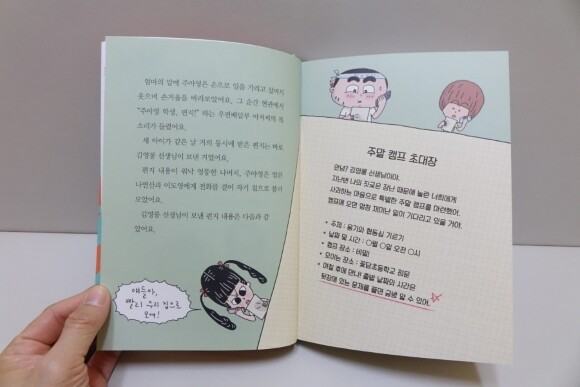 엄마의 말에 주아영은 손으로 입을 가리고 살며시
웃으며 손거울을 바라보았어요. 그 순간 현관에서
“주아영 학생, 편지!” 하는 우편배달부 아저씨의 목
소리가 들렸어요.
세 아이가 같은 날 거의 동시에 받은 편지는 바로
김영웅 선생님이 보낸 거였어요.
편지 내용이 워낙 엉뚱한 나머지, 주아영은 얼른
나먼산과 이도영에게 전화를 걸어 자기 집으로 불러
모았어요.
김영웅 선생님이 보낸 편지 내용은 다음과 같
았어요.
얘들아,
빨리 우리 집으로
모여!
주말 캠프 초대장
안녕? 김영웅 선생님이야.
지난번 나의 짓궂은 장난 때문에 놀란 너희에게
사과하는 마음으로 특별한 주말 캠프를 마련했어.
캠프에 오면 엄청 재미난 일이 기다리고 있을 거야.
• 주제 : 용기와 협동심 기르기
• 날짜 및 시간 : ○월 ○일 오전 ○시
• 캠프 장소 : 비밀!
• 모이는 장소 : 꽃담초등학교 정문
• 며칠 후에 만나! 출발 날짜와 시간은
뒷장에 있는 문제를 풀면 금방 알 수 있어.